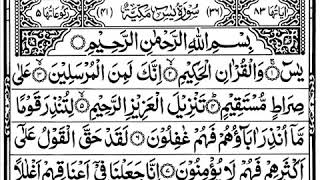 اٰیَاتُهَا ۸۳ (۳۶) سُوْرَةُ یٰسٓ مَكِّیَّةٌ (۴۱) رُكُوْعَاتُهَا ۵
بِسْمِ اللّٰهِ الرَّحْمٰنِ الرَّحِیْمِ
یٰسٓ ۝ وَالْقُرْاٰنِ الْحَكِیْمِ ۝ اِنَّكَ لَمِنَ الْمُرْسَلِیْنَ ۝ عَلٰی
صِرَاطٍ مُّسْتَقِیْمٍ ۝ تَنْزِیْلَ الْعَزِیْزِ الرَّحِیْمِ ۝ لِتُنْذِرَ قَوْمًا
مَّاۤ اُنْذِرَ اٰبَآؤُهُمْ فَهُمْ غٰفِلُوْنَ ۝ لَقَدْ حَقَّ الْقَوْلُ عَلٰۤی
اَكْثَرِهِمْ فَهُمْ لَا یُؤْمِنُوْنَ ۝ اِنَّا جَعَلْنَا فِیْۤ اَعْنَاقِهِمْ اَغْلٰلًا